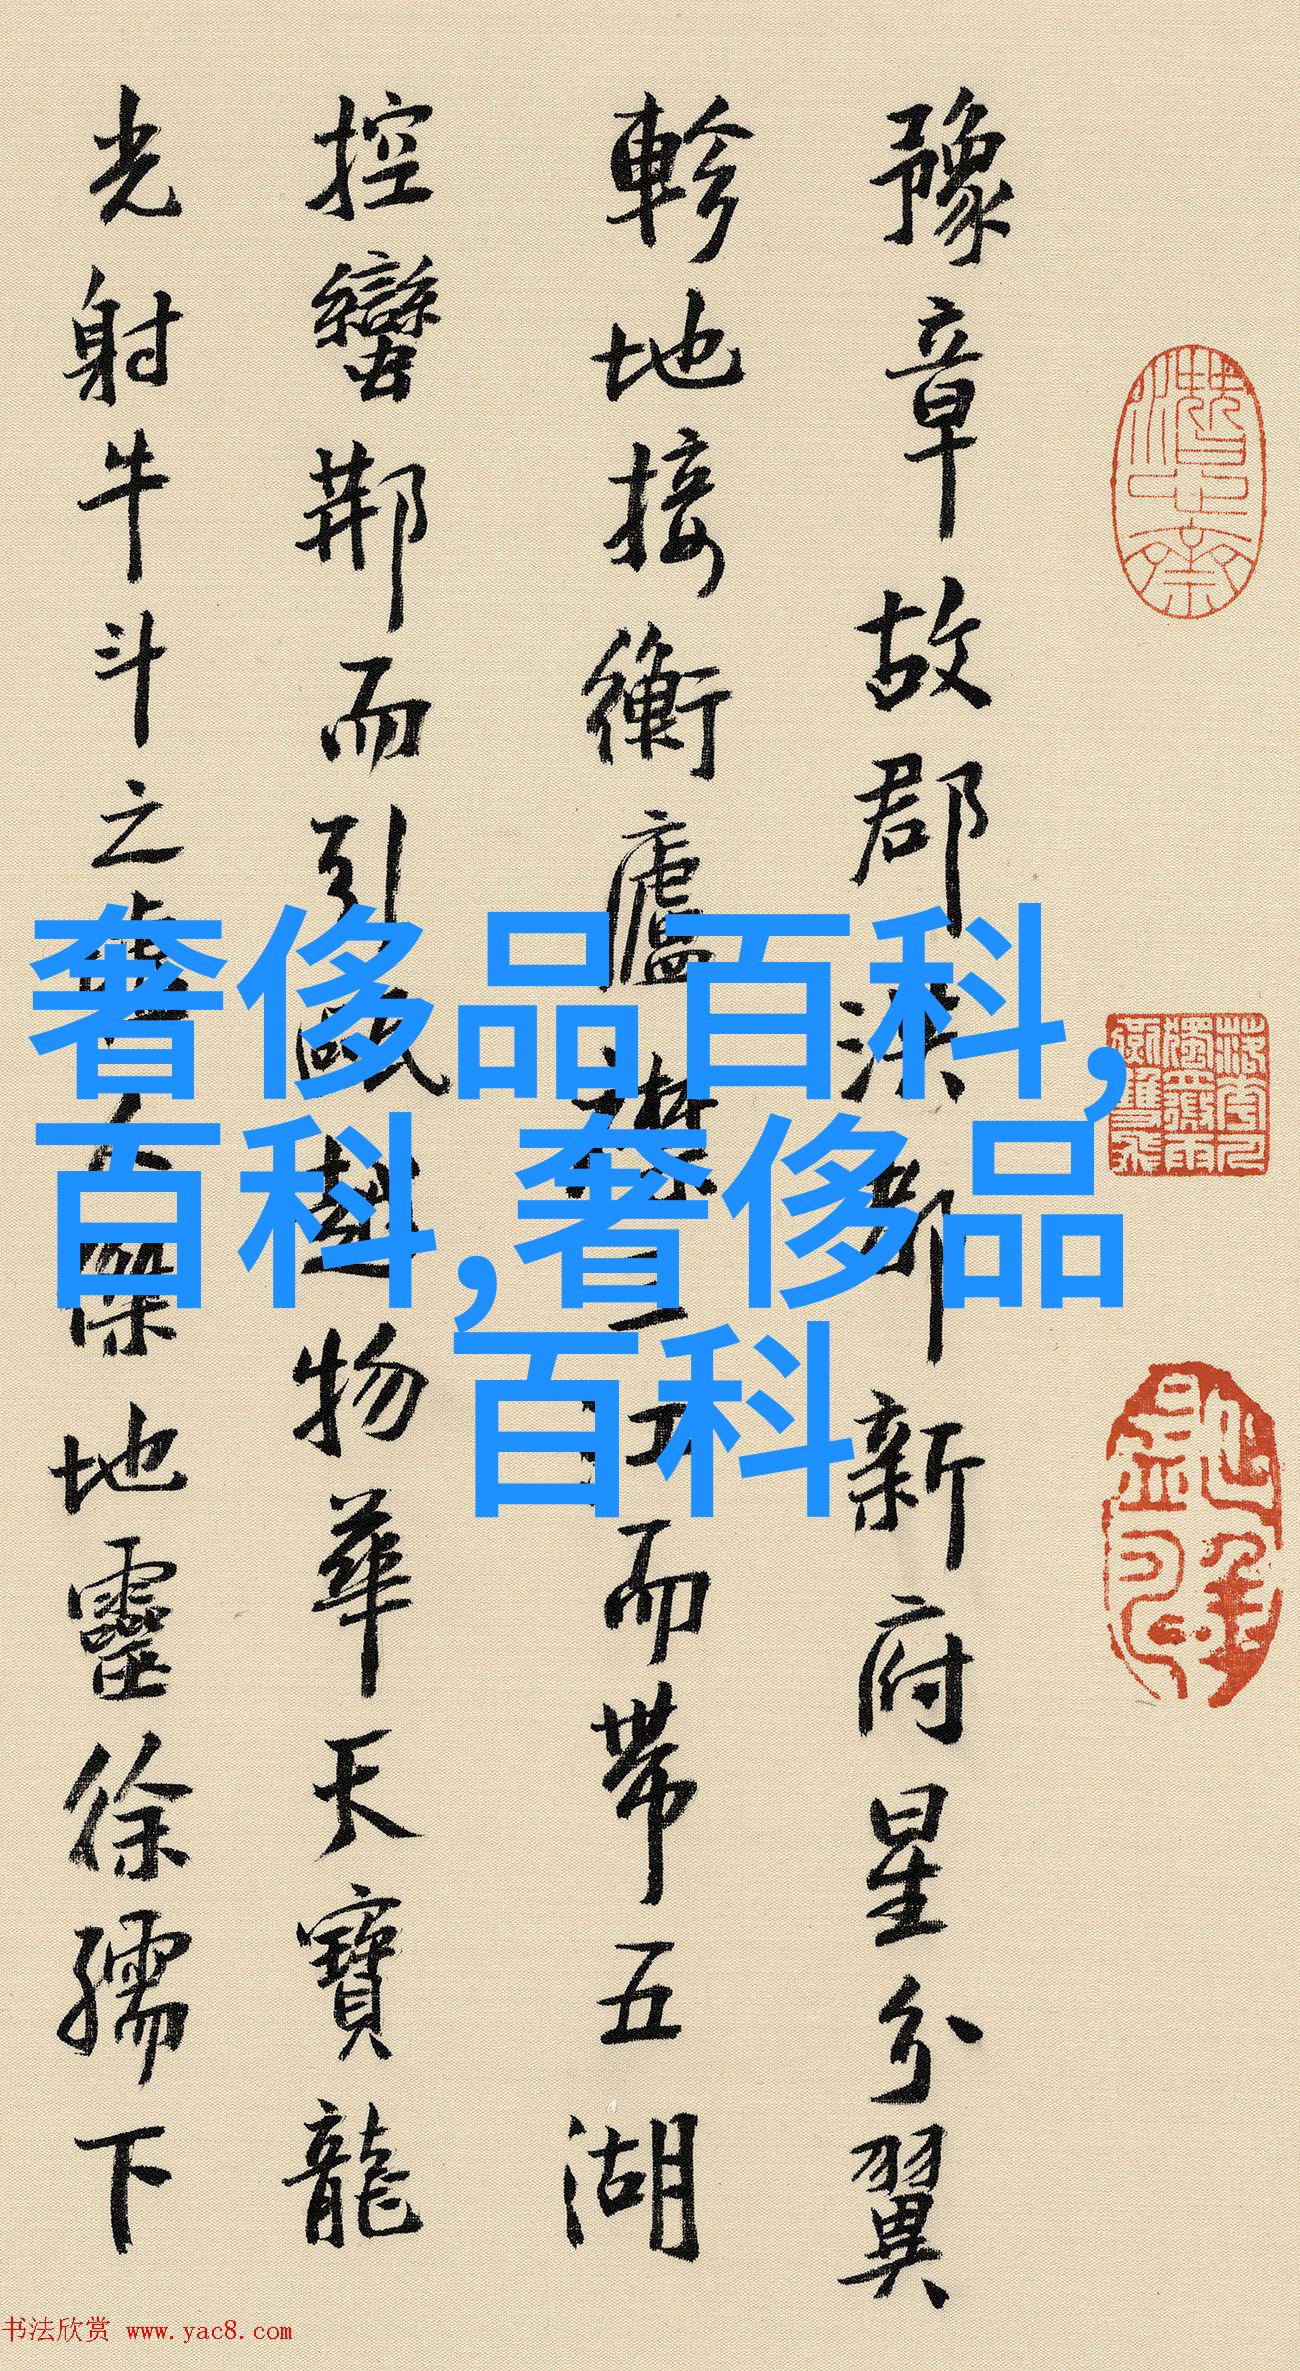 豫章故郡洪都新府星分翼
軫地接衡廬襟三江而帶五湖
控蠻荆而引甌越物華天寶龍
光射牛斗之虛人傑地靈徐孺下
奢侈品百科,
百科,奢侈品
百科
书法欣赏 www.yac8.com